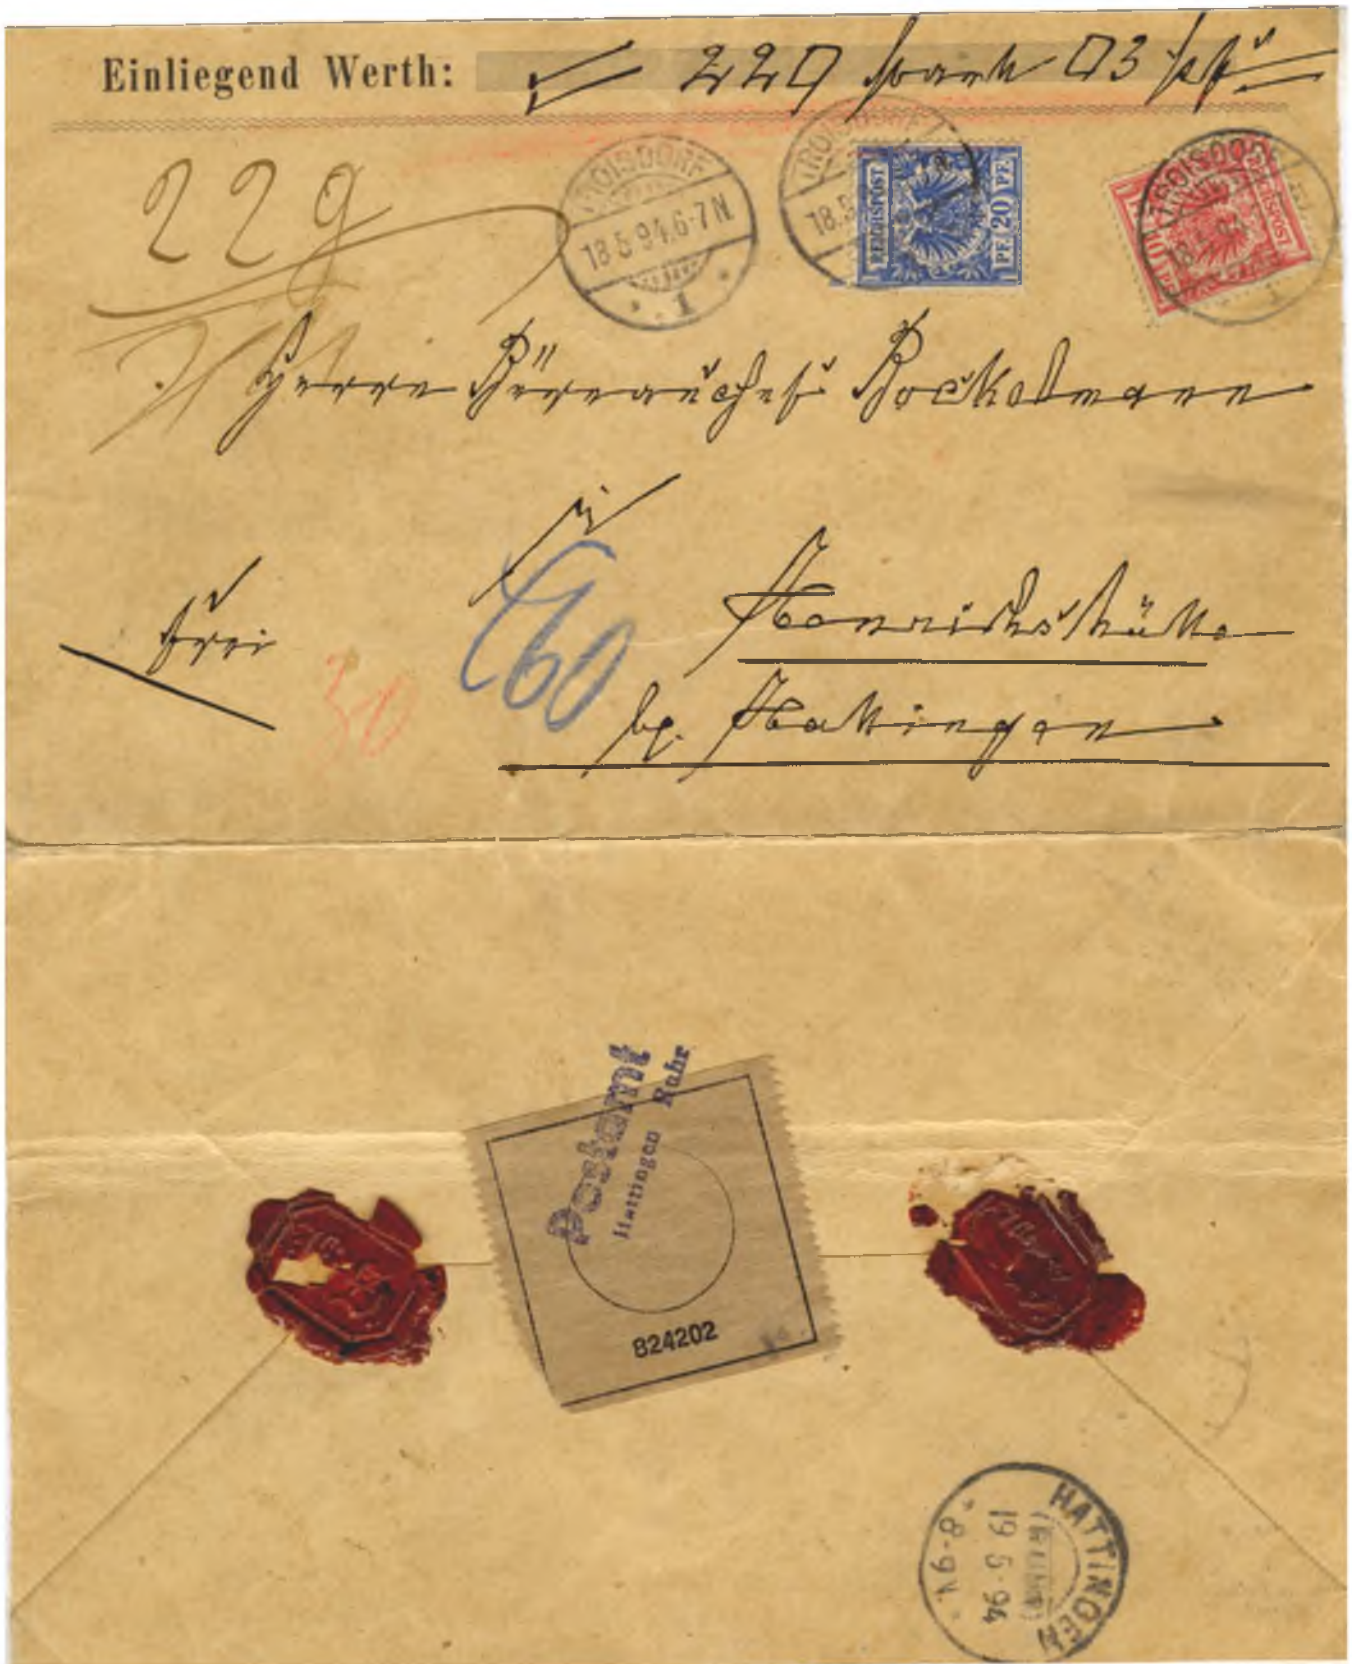 Einliegend Werth: 220 Mark 03 Pf
TROISDORF
18.5.94.6-7N
1
TROISDORF
18.5
REICHSPOST
PF. 20 PF.
TROISDORF
18.5.94
REICHSPOST
10
PF
1
229
Herrn Bockelmann
frei
30
60
Henrichshütte
bei Hattingen
Postamt
Hattingen Ruhr
824202
HATTINGEN
(RUHR)
19.5.94
8-9V.